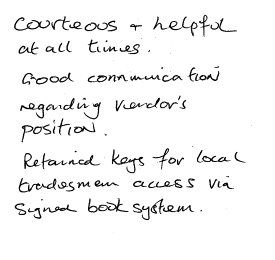 Courteous + helpful
at all times.
Good communication
regarding vendor's
position.
Retained keys for local
tradesmen access via
signed book system.